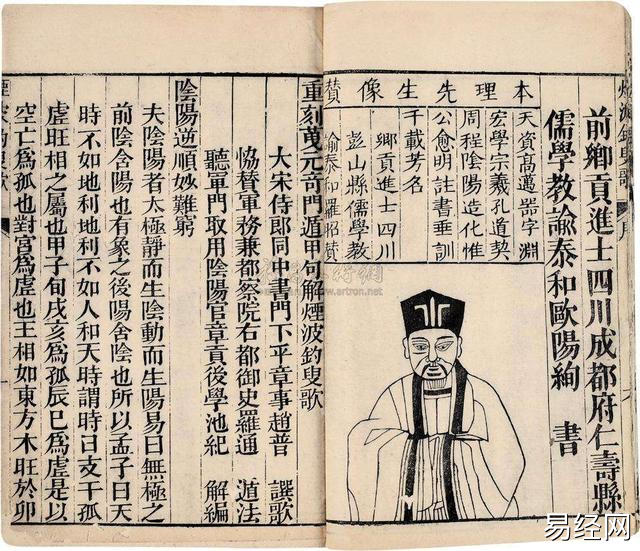 煙波釣叟歌 序
前鄉貢進士四川成都府仁壽縣
儒學教諭泰和歐陽絢 書
本理先生像賛
天資高邁器字淵
宏學宗羲孔道契
周程陰陽造化惟
公愈明註書垂訓
千載芳名
鄉貢進士四川
彭山縣儒學教
諭泰和羅昭賛
重刻元奇門遁甲句解煙波釣叟歌
大宋侍郎同中書門下平章事趙普 譔歌
協賛軍務兼都察院右都御史羅通 遁法
聽軍門取用陰陽官章貢後學池紀 解編
陰陽逆順妙難窮
夫陰陽者太極靜而生陰動而生陽易曰無極之
前陰含陽也有象之後陽含陰也所以孟子曰天
時不如地利地利不如人和天時謂時日支干孤
虛旺相之屬也甲子旬戌亥為孤辰巳為虛是以
空亡為孤也對宮為虛也王相如東方木旺於卯
煙波釣叟歌
www.artron.net
易经网